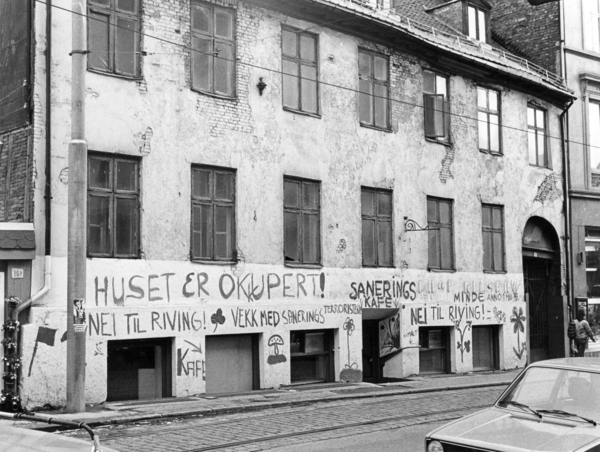 HUSET ER OKKUPERT!
SANERINGS
KAFE
MINDE
NEI TIL RIVING!
VEKK MED SANERINGS
TERRORISTEN
NEI TIL RIVING!
KAFE